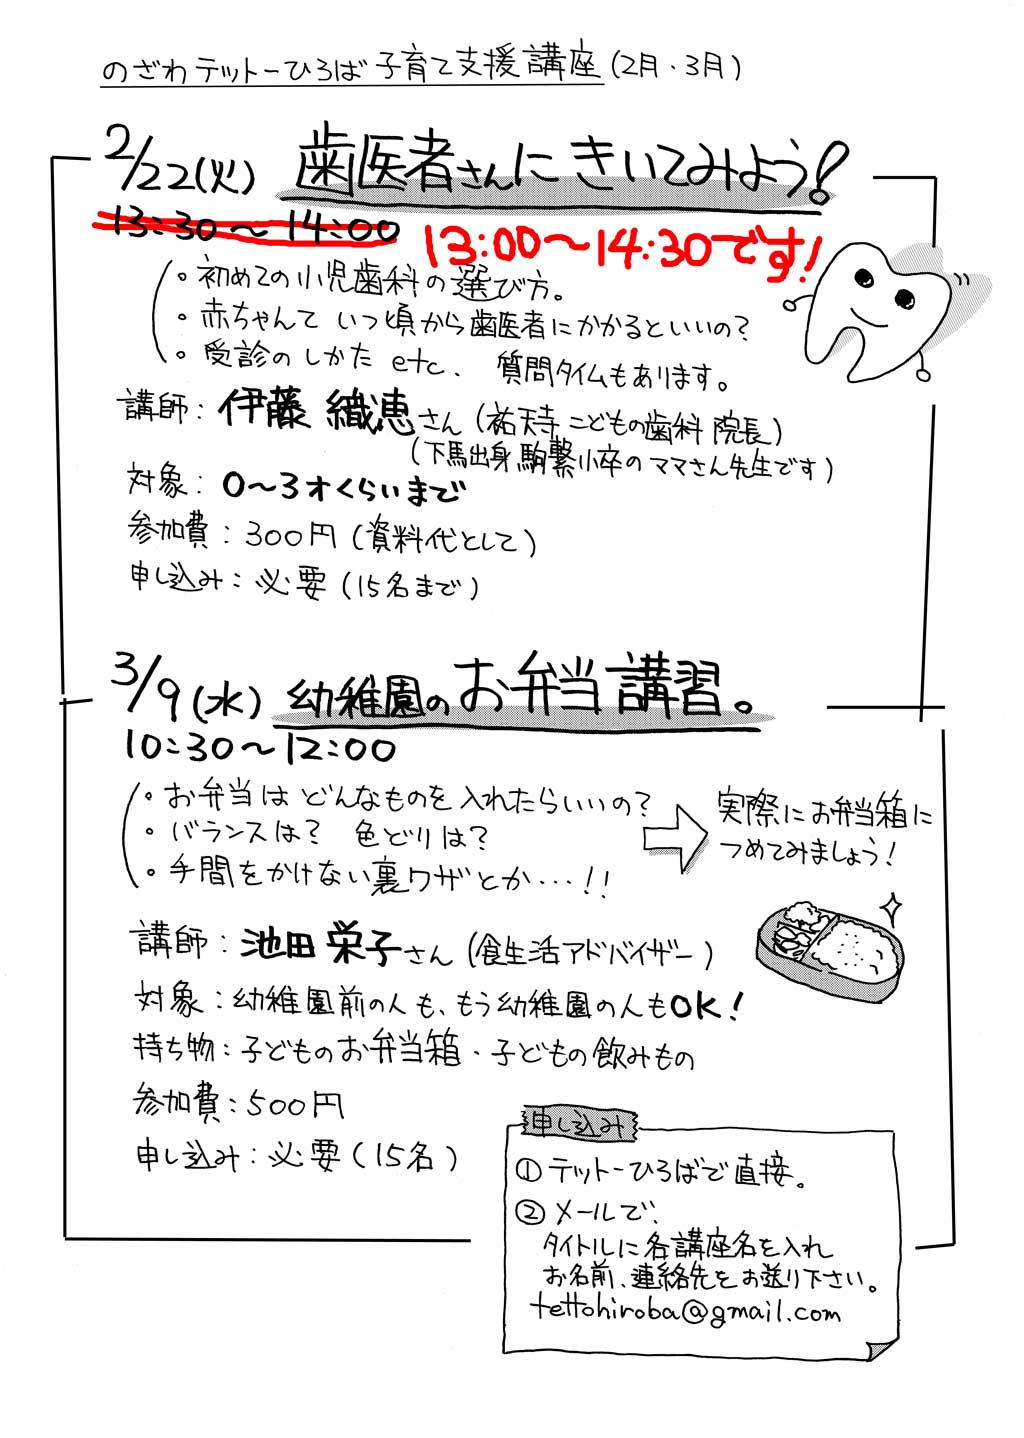 のざわテットーひろば 子育て支援講座 (2月・3月)
2/22(火) 歯医者さんにきいてみよう!
13:30〜14:00 13:00〜14:30です!
。初めての小児歯科の選び方。
・赤ちゃんて いつ頃から歯医者にかかるといいの?
。受診のしかた etc. 質問タイムもあります。
講師: 伊藤 織恵さん (祐天寺 こどもの歯科 院長)
(下馬出身 駒繋小卒のママさん先生です)
対象: 0〜3才くらいまで
参加費: 300円 (資料代として)
申し込み: 必要 (15名まで)
3/9(水) 幼稚園のお弁当講習。
10:30〜12:00
。お弁当は どんなものを入れたらいいの?
・バランスは? 色どりは?
。手間をかけない裏ワザとか…!!
実際にお弁当箱に
つめてみましょう!
講師: 池田 栄子さん (食生活アドバイザー)
対象: 幼稚園前の人も、もう幼稚園の人もOK!
持ち物: 子どものお弁当箱・子どもの飲みもの
参加費: 500円
申し込み: 必要 (15名)
申し込み
① テットーひろばで直接。
② メールで、
タイトルに各講座名を入れ
お名前、連絡先をお送り下さい。
tettohiroba@gmail.com